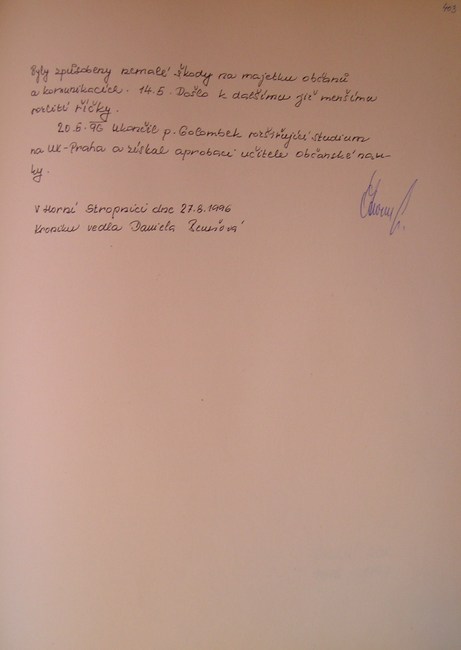 Byly způsobeny nemalé škody na majetku občanů
a komunikacích. 14.5. Došlo k dalšímu již menšímu
rozlití říčky.
20.6.96 Ukončil p. Golombek rozšiřující studium
na UK-Praha a získal aprobaci učitele občanské nau-
ky.
V Horní Stropnici dne 27.8.1996
Kroniku vedla Daniela